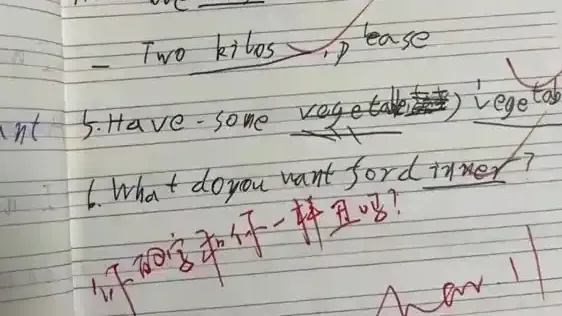 - Two kilos, please
5. Have some vegetable) vegetab
6. What do you want for dinner?
你的字和你一样丑吗?
Nov. 11